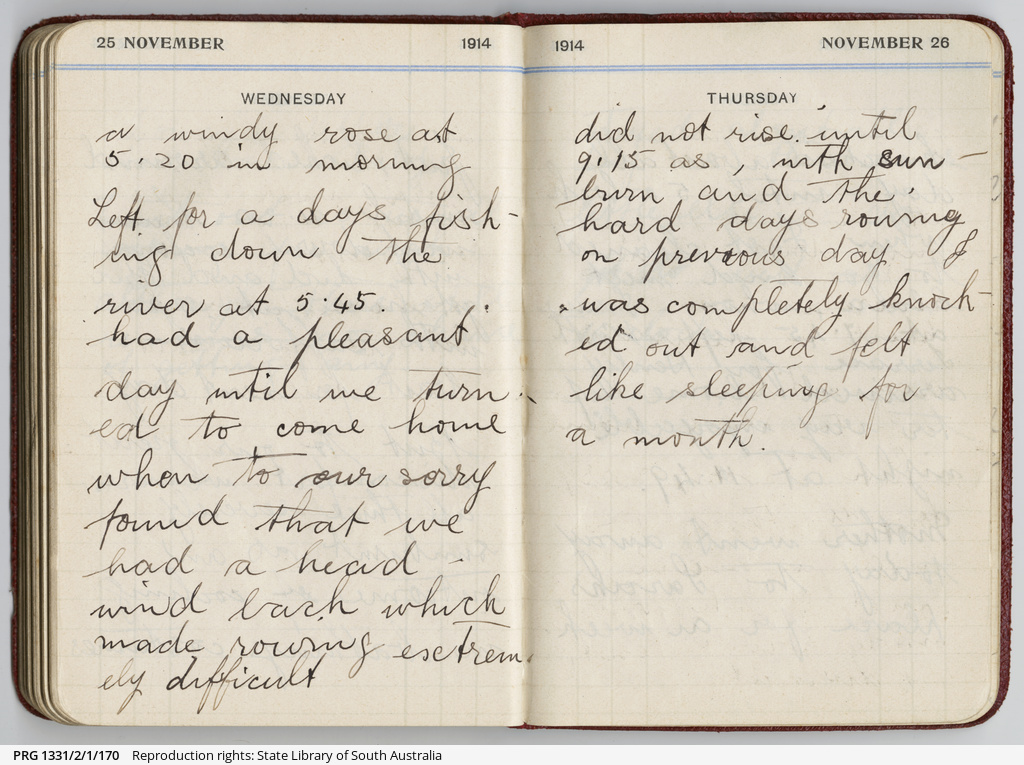 25 NOVEMBER 1914
WEDNESDAY
a windy rose at
5.20 in morning
Left for a days fish-
ing down the
river at 5.45.
had a pleasant
day until we turn-
ed to come home
when to our sorry
found that we
had a head
wind back which
made rowing esctrem-
ely difficult
1914 NOVEMBER 26
THURSDAY
did not rise until
9.15 as with sun-
burn and the
hard days rowing
on prevous day I
was completely knock-
ed out and felt
like sleeping for
a month.
PRG 1331/2/1/170 Reproduction rights: State Library of South Australia